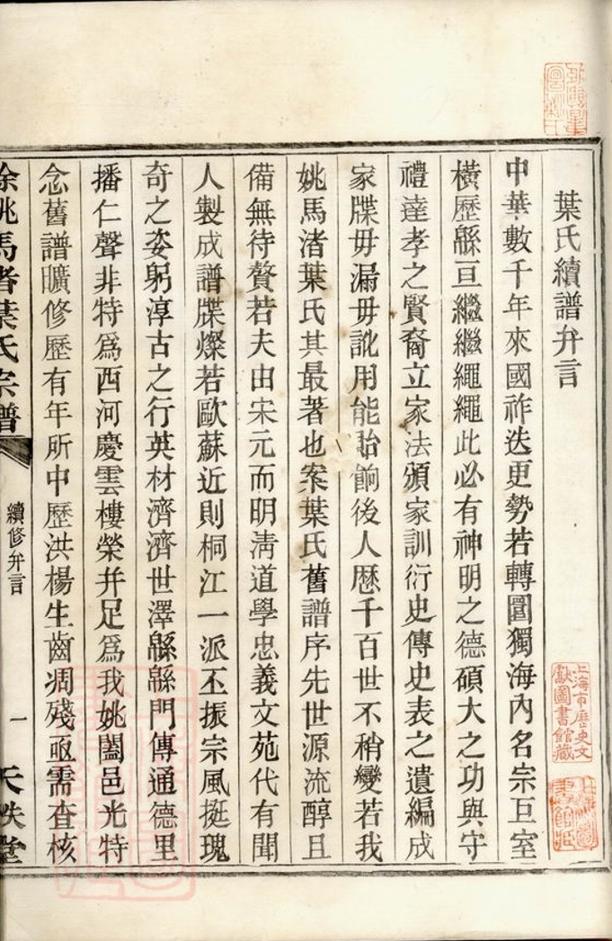 葉氏續譜弁言
中華數千年來國祚迭更勢若轉圜獨海內名宗巨室
橫歷緜亘繼繼繩繩此必有神明之德碩大之功與守
禮達孝之賢裔立家法頒家訓衍史傳史表之遺編成
家牒毋漏毋訛用能貽餉後人歷千百世不稍變若我
姚馬渚葉氏其最著也案葉氏舊譜序先世源流醇且
備無待贅若夫由宋元而明淸道學忠義文苑代有聞
人製成譜牒燦若歐蘇近則桐江一派丕振宗風挺瑰
奇之姿躬淳古之行英材濟濟世澤緜緜門傳通德里
播仁聲非特爲西河慶雲樓榮幷足爲我姚闔邑光特
念舊譜曠修歷有年所中歷洪楊生齒凋殘亟需查核
餘姚馬渚葉氏宗譜
續修弁言
一
天秩堂
上海市歷史文
獻圖書館藏